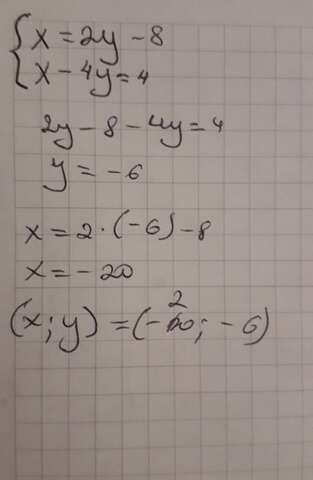 {x = 2y - 8
x - 4y = 4
2y - 8 - 4y = 4
y = -6
x = 2 · (-6) - 8
x = -20
(x; y) = (-20; -6)